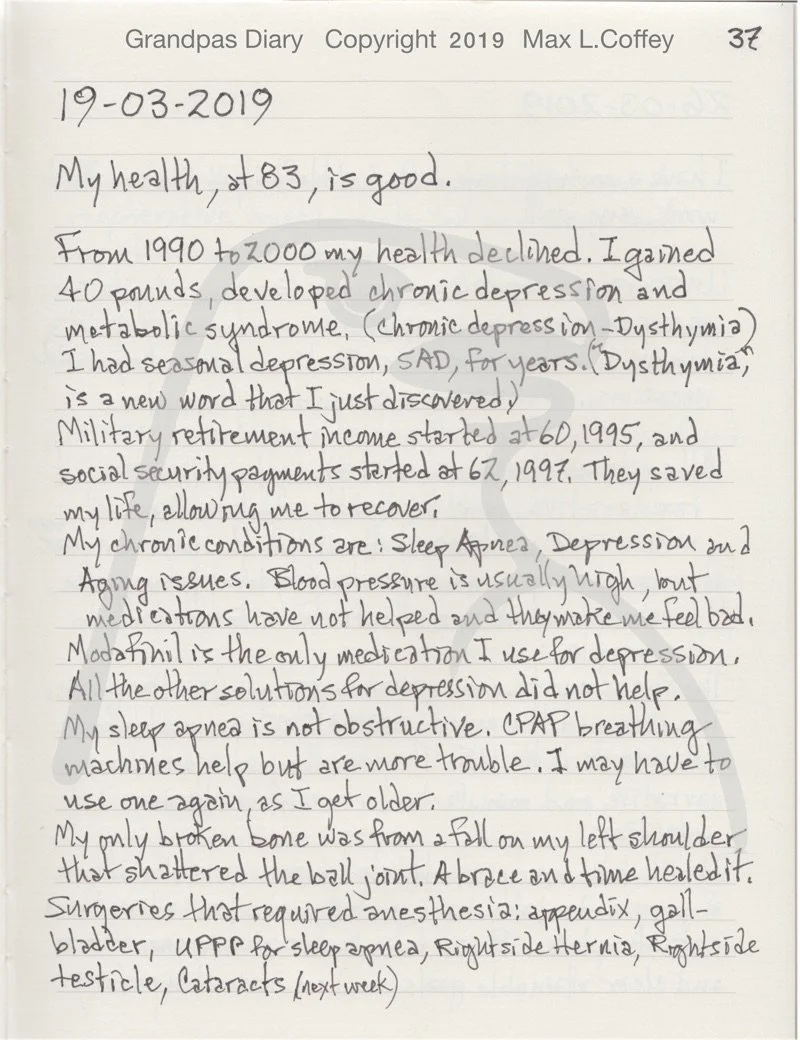 Grandpas Diary Copyright 2019 Max L.Coffey 37
19-03-2019
My health, at 83, is good.
From 1990 to 2000 my health declined. I gained
40 pounds, developed chronic depression and
metabolic syndrome. (Chronic depression-Dysthymia)
I had seasonal depression, SAD, for years. ("Dysthymia",
is a new word that I just discovered.)
Military retirement income started at 60, 1995, and
social security payments started at 62, 1997. They saved
my life, allowing me to recover.
My chronic conditions are: Sleep Apnea, Depression and
Aging issues. Blood pressure is usually high, but
medications have not helped and they make me feel bad.
Modafinil is the only medication I use for depression.
All the other solutions for depression did not help.
My sleep apnea is not obstructive. CPAP breathing
machines help but are more trouble. I may have to
use one again, as I get older.
My only broken bone was from a fall on my left shoulder
that shattered the ball joint. A brace and time healed it.
Surgeries that required anesthesia: appendix, gall-
bladder, UPPP for sleep apnea, Rightside Hernia, Rightside
testicle, Cataracts (next week)